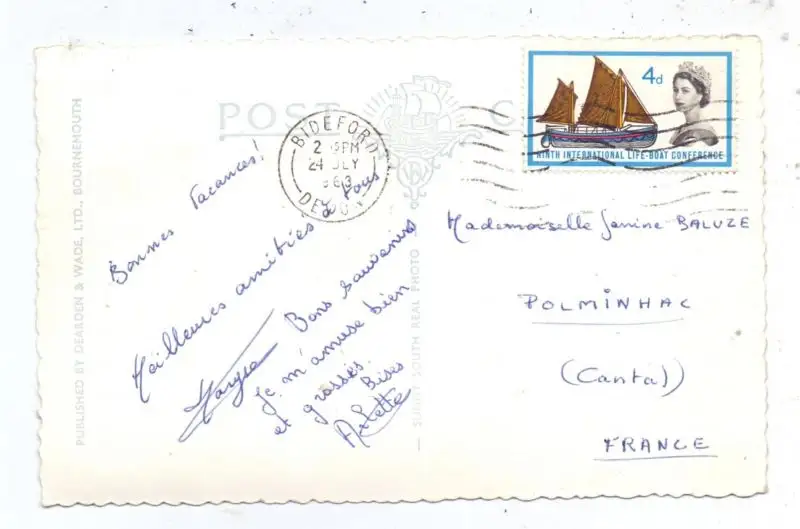 POST
BIDEFORD
24 JLY
4d
NINTH INTERNATIONAL LIFE-BOAT CONFERENCE
Bonnes Vacances!
Meilleures amitiés à tous
Maryse
Bons souvenirs
Je m'amuse bien
et grosses
Bises
Arlette
Mademoiselle Janine BALUZE
POLMINHAC
(Cantal)
FRANCE
PUBLISHED BY DEARDEN & WADE, LTD., BOURNEMOUTH
— SUNNY SOUTH REAL PHOTO